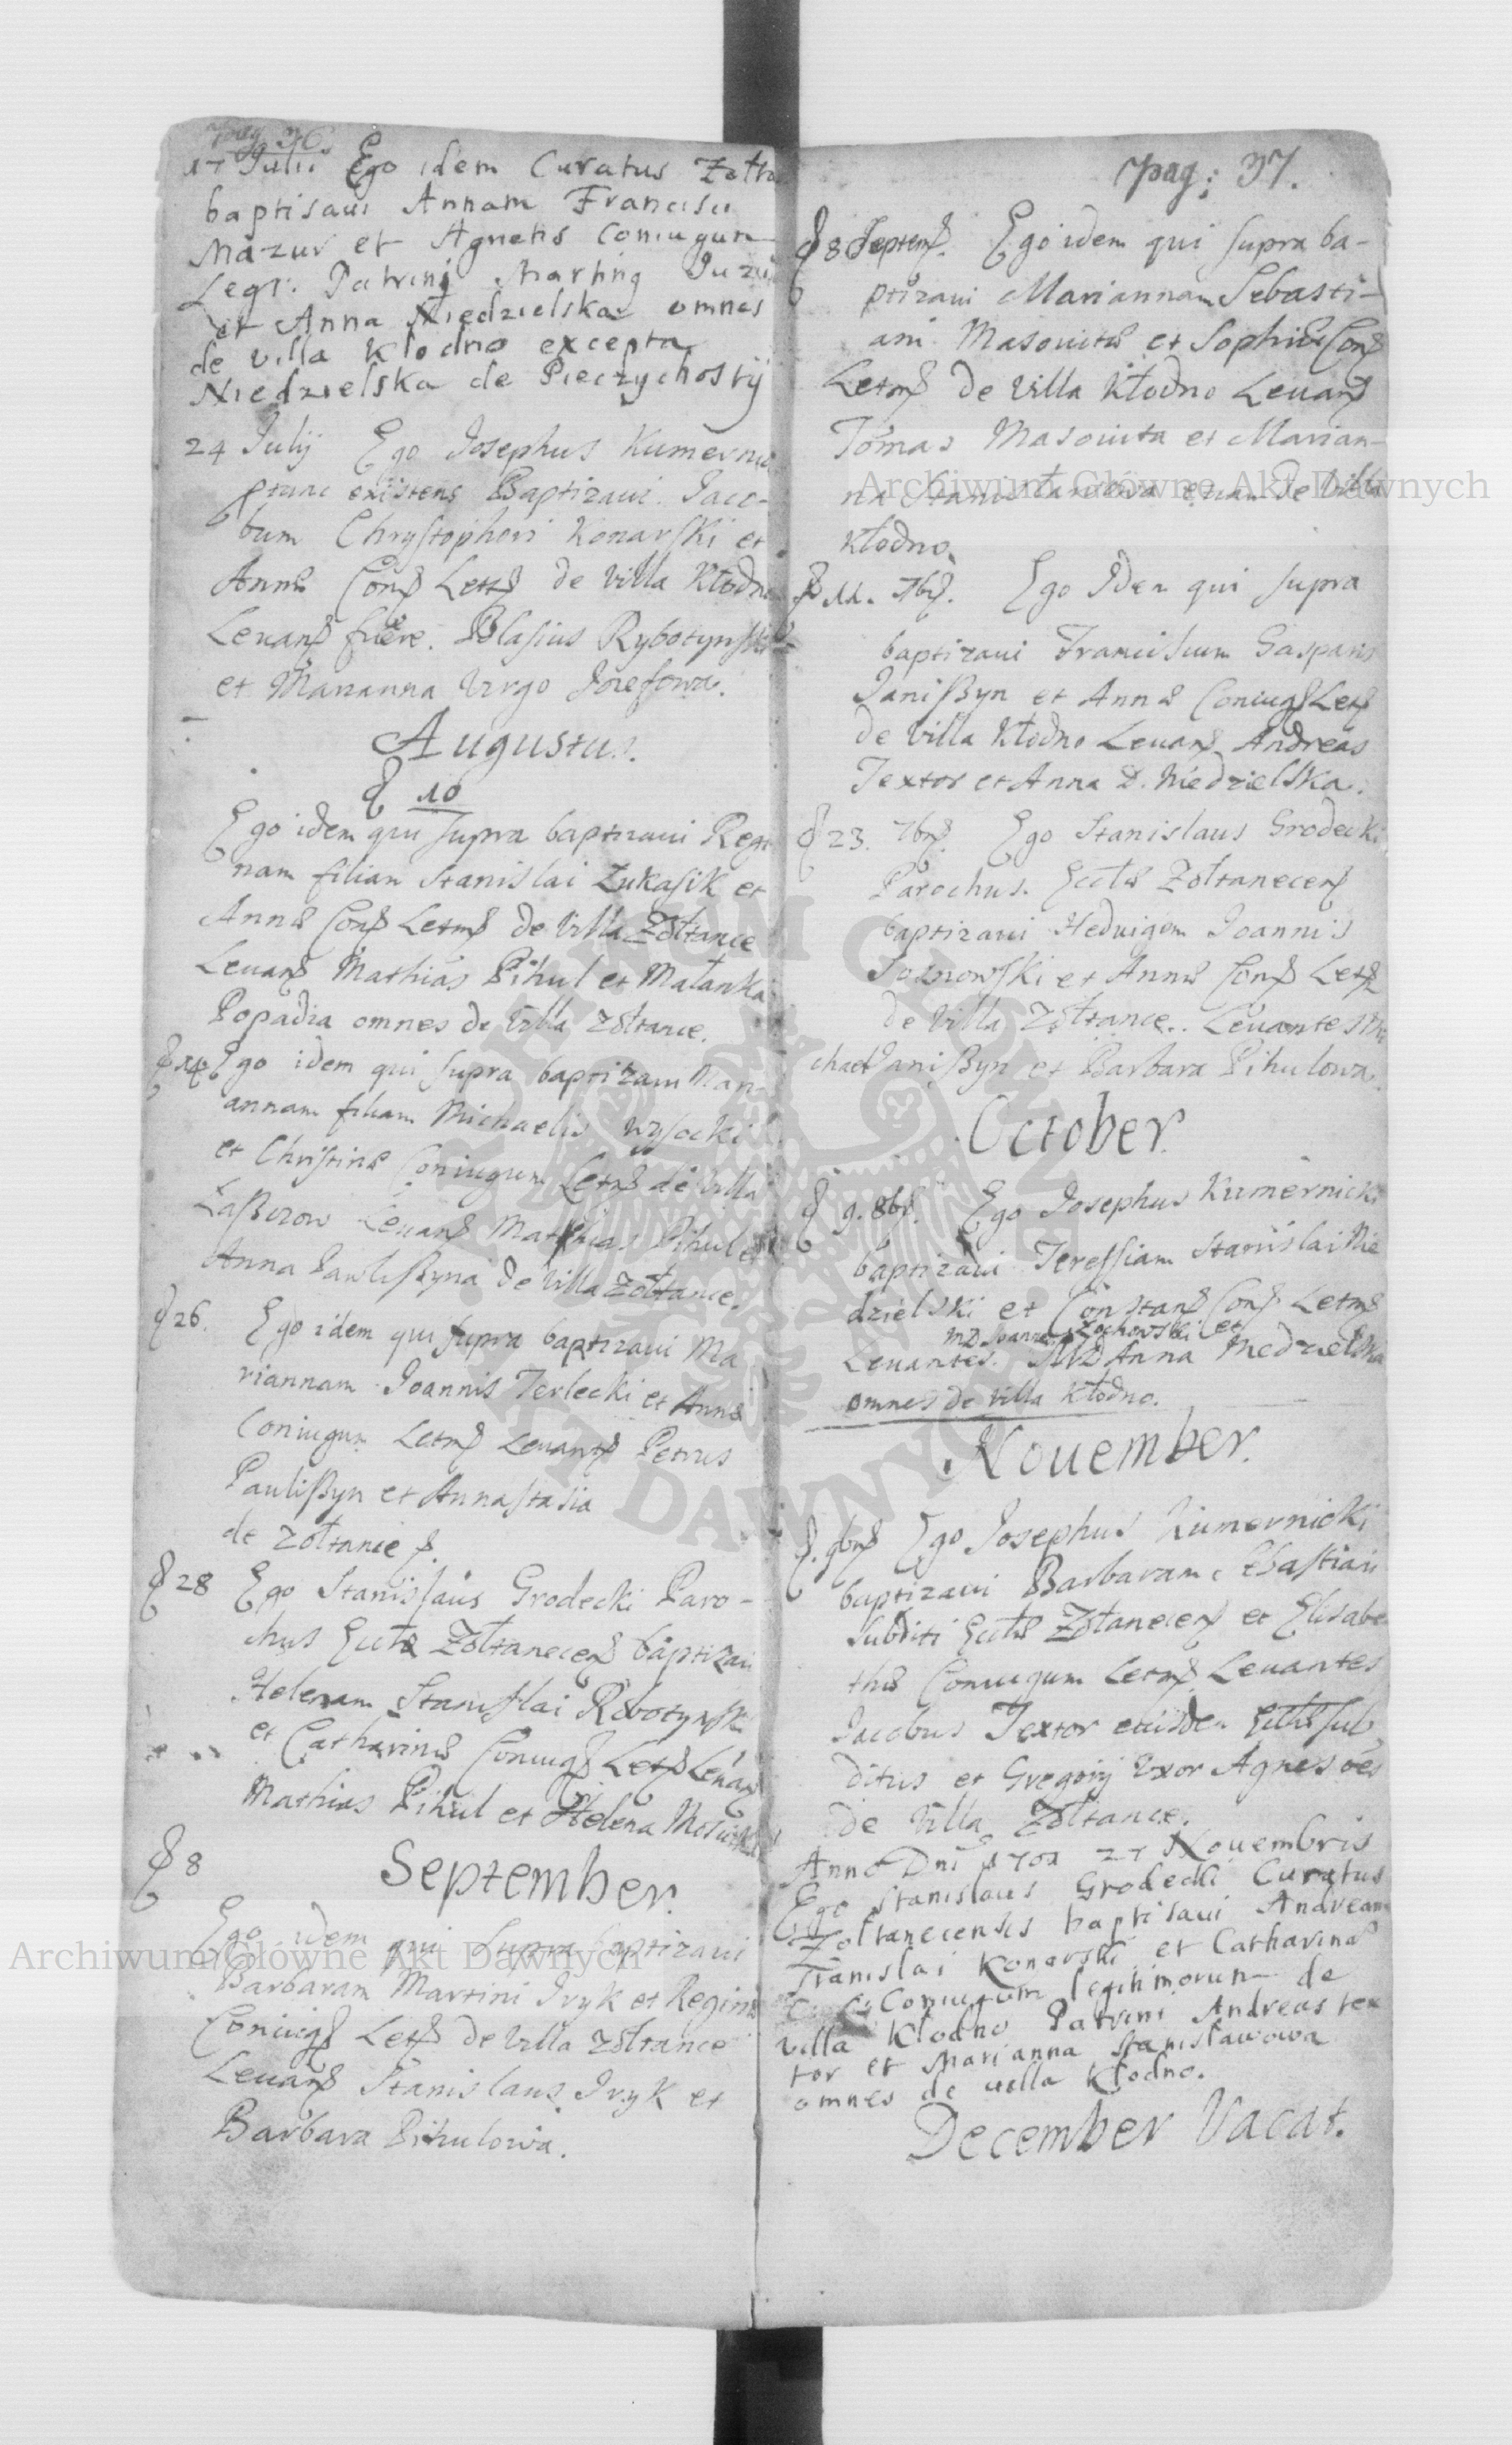 pag 36.
17 Julii Ego idem Curatus Zołta
baptisaui Annam Francisci
Mazur et Agnetis Coniugum
Legi: Patrini Marting
et Anna Niedzielska omnes
de villa Kłodno excepta
Niedzielska de Pieczychosty
24 Julij Ego Josephus Kumernic
ptunc existens Baptizaui Jaco-
bum Chrystophori Konarski et
Annæ Conj Lettj de villa Kłodno
Leuanj fuere. Blasius Rybotynski
et Marianna Virgo Jozefowa.
Augustus.
d 10
Ego idem qui supra baptizaui Regi
nam filiam Stanislai Łukasik et
Annæ Conj Letmj de Villa Zołtance
Leuanj Mathias Pihul et Małanka
Popadia omnes de Villa Zołtance.
d 14 Ego idem qui supra baptizaui Mari
annam filiam Michaelis Wysocki
et Christinæ Coniugum Letmj de Villa
Leuanj Mathias Pihul et
Anna Pawlißyna de Villa Zołtance.
d 26. Ego idem qui supra baptizaui Ma
riannam Joannis Terlecki et Annæ
Coniugum Letmj Leuantj Petrus
Paulißyn et Annastasia
de Zołtance
d 28 Ego Stanislaus Grodecki Paro-
chus Ecclæ Zołtanecenj baptizaui
Helenam Stanislai Rebotynski
et Catharinæ Coniugj Letj Leuanj
Mathias Pihul et Helena
d 8 September.
Ego idem qui supra baptizaui
Barbaram Martini Iryk et Reginæ
Coniugj Letj de Villa Zołtance
Leuanj Stanislaus Iryk et
Barbara Pihulowa.
pag: 37.
d 8 Septemj. Ego idem qui supra ba-
ptizaui Mariannam Sebasti-
ani Masouitæ et Sophiæ Conj
Letmj de Villa Kłodno Leuanj
Tomas Masouita et Marian-
na Stanisławowa etiam de Villa
Kłodno.
d 11. 7brj. Ego Idem qui supra
baptizaui Franciscum Gasparis
Janißyn et Annæ Coniugj Letj
de Villa Kłodno Leuanj Andreas
Textor et Anna D. Niedzielska.
d 23. 7brj. Ego Stanislaus Grodecki
Parochus Ecclæ Zołtanecenj
baptizaui Heduigem Joannis
Sosnowski et Annæ Conj Letj
de Villa Zołtance. Leuantes Mi
chael Janißyn et Barbara Pihulowa.
October.
d 9. 8brj. Ego Josephus Kumernicki
baptizaui Teressiam Stanislai Nie
dzielski et Constanj Conj Letmj
MD Joannes Zochowski et
Leuantes. MD Anna Niedzielska
omnes de Villa Kłodno.
Nouember.
d. 9brj Ego Josephus Kumernicki
baptizaui Barbaram Sebastiani
subditi Ecclæ Zołtanecenj et Elisabe
thæ Coniugum Letmj Leuantes
Jacobus Textor eiusdem Ecclæ sub
ditus et Gregorij Uxor Agnes oēs
de Villa Zołtance.
Anno Dni 1701 27 Nouembris
Ego Stanislaus Grodecki Curatus
Zołtanecensis baptisaui Andream
Stanislai Konarski et Catharinæ
Coniugum legitimorum de
villa Kłodno Patrini Andreas tex
tor et Marianna Stanisławowa
omnes de villa Kłodno.
December Vacat.
Archiwum Główne Akt Dawnych
Archiwum Główne Akt Dawnych
ARCHIWUM GŁÓWNE AKT DAWNYCH